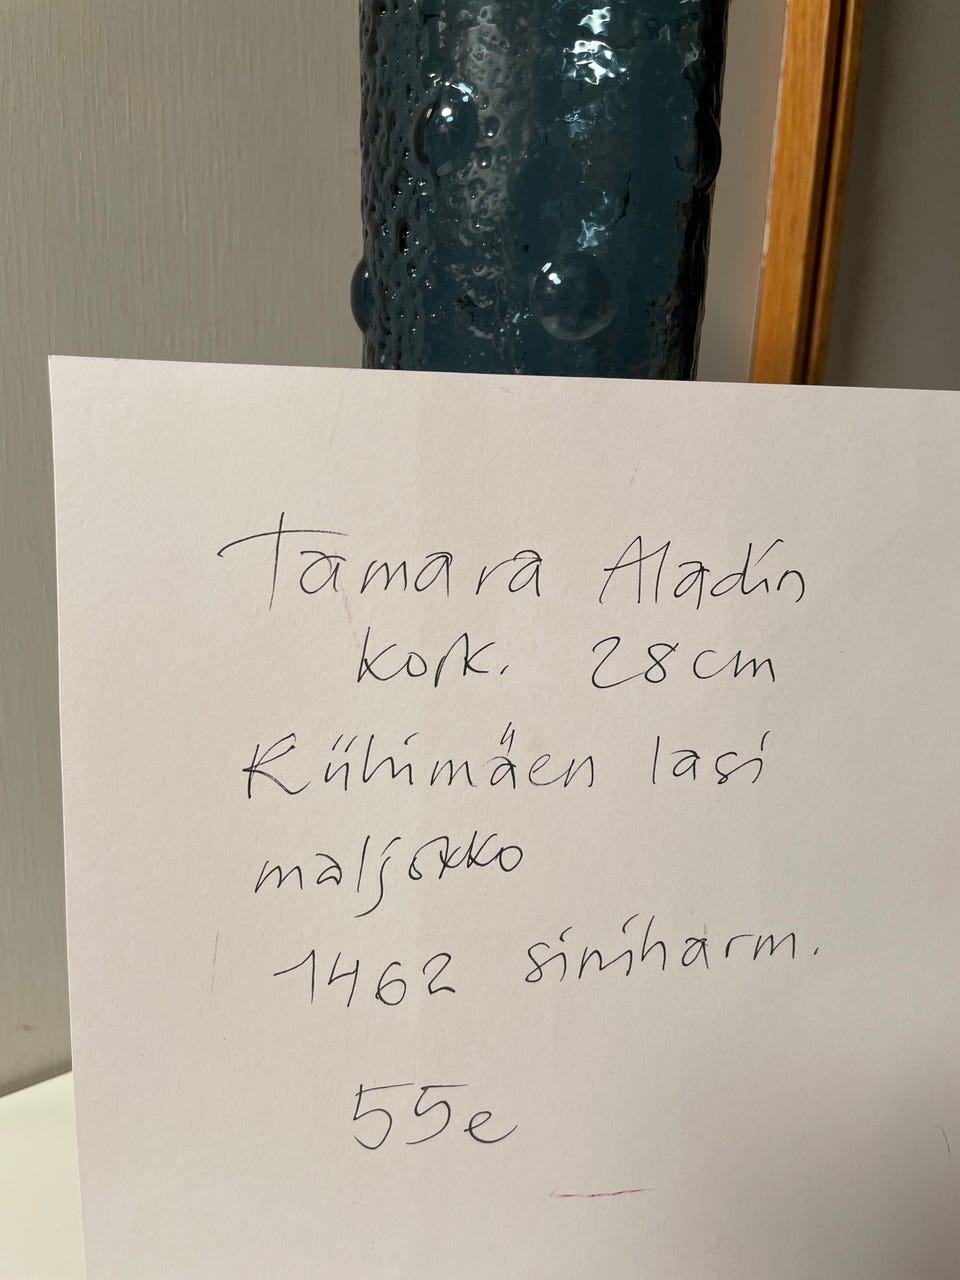 Tamara Aladin
kork. 28cm
Riihimäen lasi
maljakko
1462 siniharm.
55e